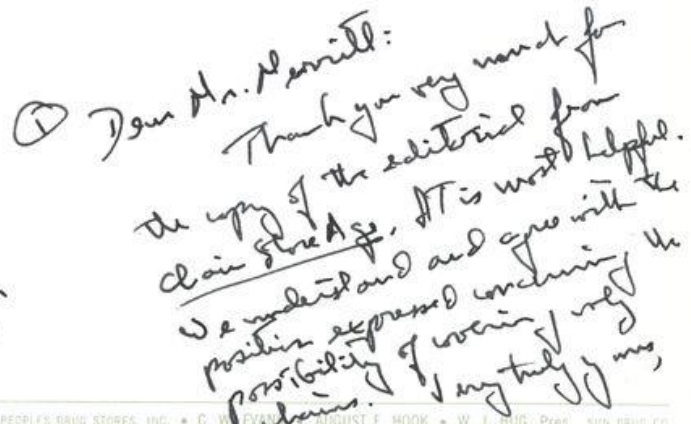 ① Dear Mr. Merritt:
Thank you very much for
the copy of the editorial from
Chain Store Age. It is most helpful.
We understand and agree with the
position expressed concerning the
possibility of covering only
chains. Very truly yours,
PEOPLES DRUG STORES, INC. • G. W. EVANS • AUGUST F. HOOK • W. J. HUG, Pres., SUN DRUG CO.